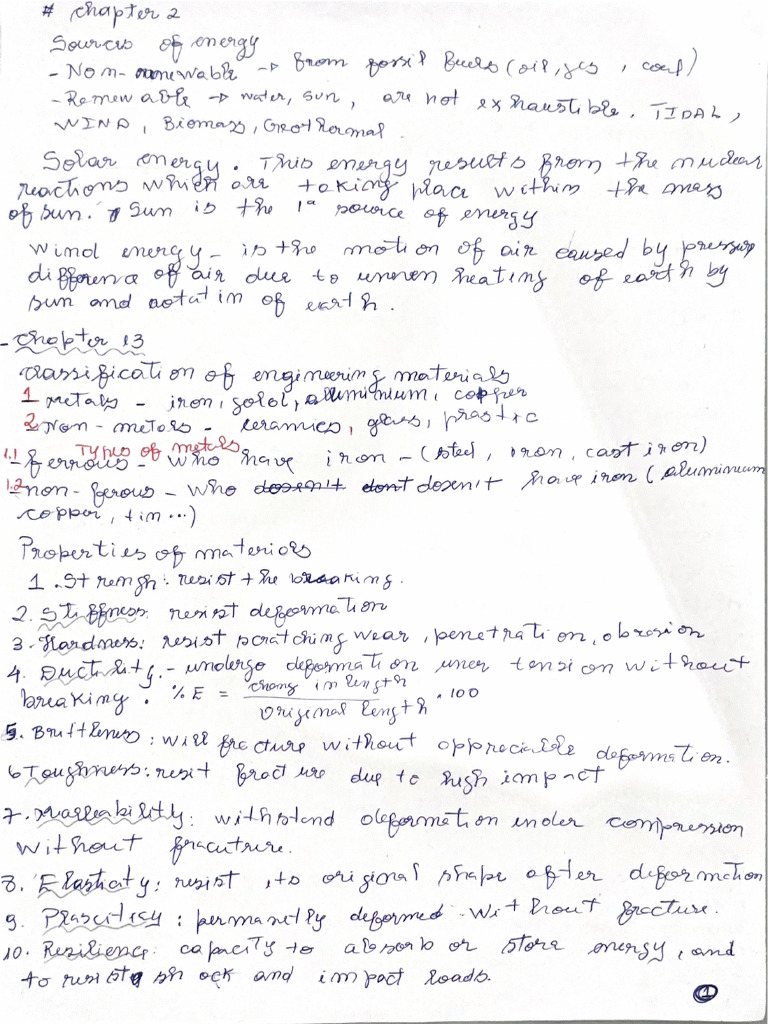 # chapter 2
Sources of energy
- Non-renewable -> from fossil fuels (oil, ges, coal)
- Renewable -> water, sun, are not exhaustible. TIDAL,
WIND, Biomass, Geothermal.
Solar energy. This energy results from the nuclear
reactions which are taking place within the mass
of sun. Sun is the 1a source of energy
wind energy - is the motion of air caused by pressure
difference of air due to uneven heating of earth by
sun and rotatin of earth.
- Chapter 13
classification of engineering materials
1 metals - iron, golol, alluminium, copper
2 Non-metals - ceramics, glass, plastic
Types of metals
1.1 - ferrous - who have iron - (steel, iron, cast iron)
1.2 - non-ferous - who dosen't dont dosen't have iron (aluminium
copper, tin...)
Properties of materials
1. Strengh: resist the breaking.
2. Stiffness: resist deformation
3. Hardness: resist scratching wear, penetration, abrasion
4. Ductility. - undergo deformation uner tension without
breaking. % E = chang in length / original length . 100
5. Brittlenes: will fracture without appreciable deformation.
6 Toughness: resit fracture due to high impact
7. Malleability: withstand deformation under compression
without fracutrure.
8. Elasticity: resist, to original shape after deformation
9. Plascitisy: permanetly deformed without fracture.
10. Resilience: capacity to absorb or store energy, and
to resist shock and impact loads.
1